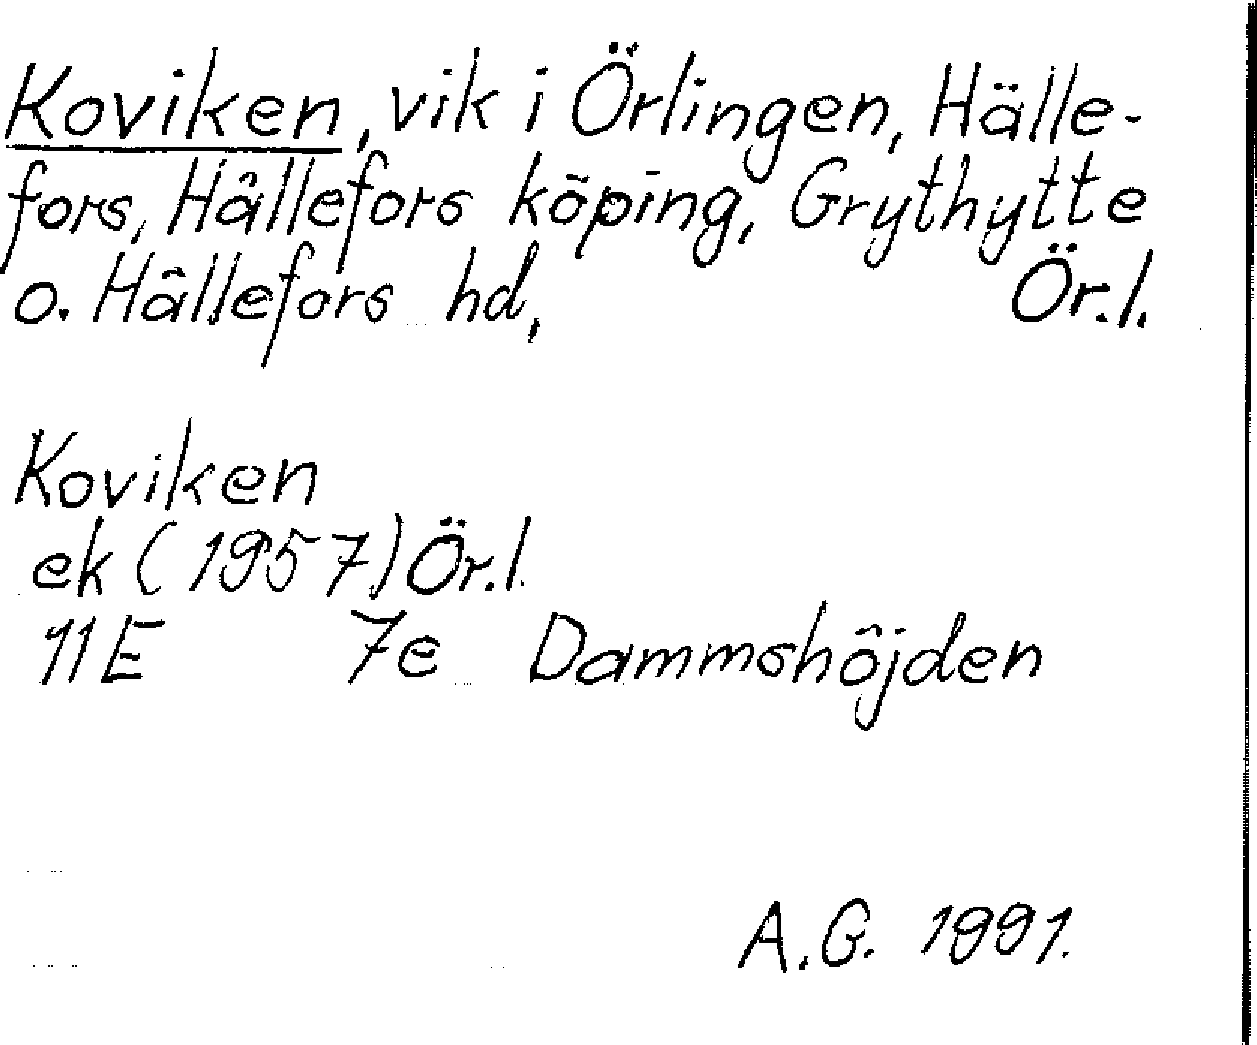 Koviken, vik i Örlingen, Hälle-
fors, Hällefors köping, Grythytte
o. Hällefors hd, Ör.l.
Koviken
ek (1957) Ör.l.
11E 7e Dammshöjden
A.G. 1991.